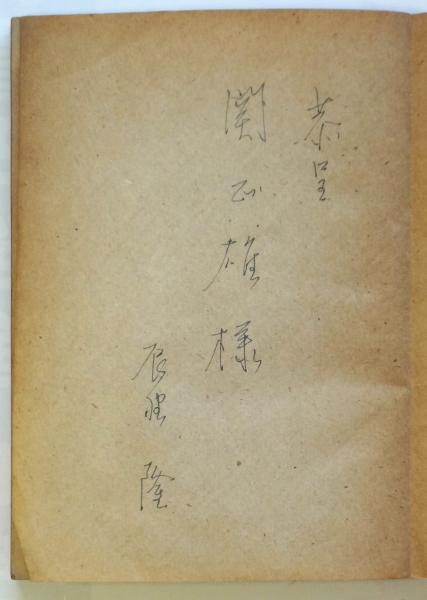 恭呈
関正雄様
辰野隆